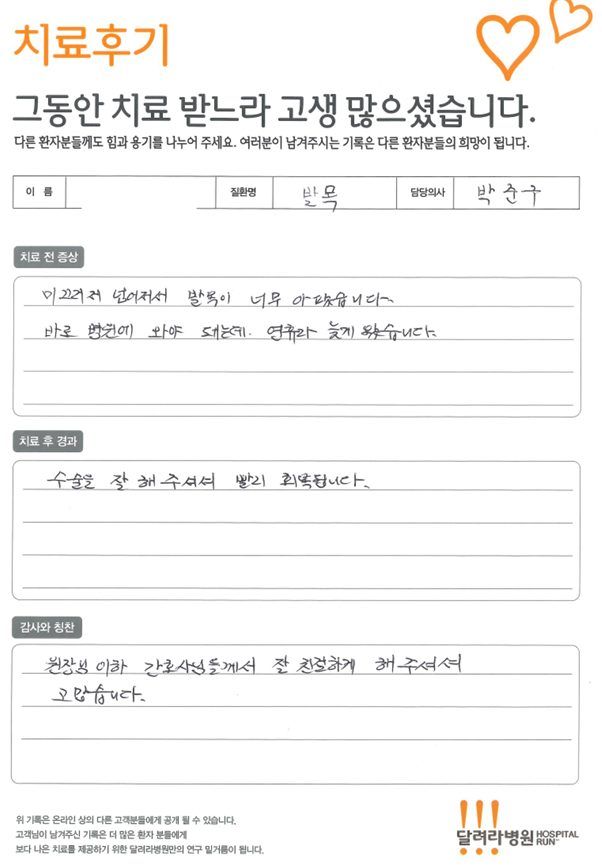 치료후기
그동안 치료 받느라 고생 많으셨습니다.
다른 환자분들께도 힘과 용기를 나누어 주세요. 여러분이 남겨주시는 기록은 다른 환자분들의 희망이 됩니다.
이 름 질환명 발목 담당의사 박준구
치료 전 증상
미끄러져 넘어져서 발목이 너무 아팠습니다.
바로 병원에 와야 돼는데. 연휴라 늦게 왔습니다.
치료 후 경과
수술을 잘 해주셔서 빨리 회복됩니다.
감사와 칭찬
원장님 이하 간호사님들께서 잘 친절하게 해주셔서
고맙습니다.
위 기록은 온라인 상의 다른 고객분들에게 공개 될 수 있습니다.
고객님이 남겨주신 기록은 더 많은 환자 분들에게
보다 나은 치료를 제공하기 위한 달려라병원만의 연구 밑거름이 됩니다.
달려라병원 HOSPITAL RUN!!!